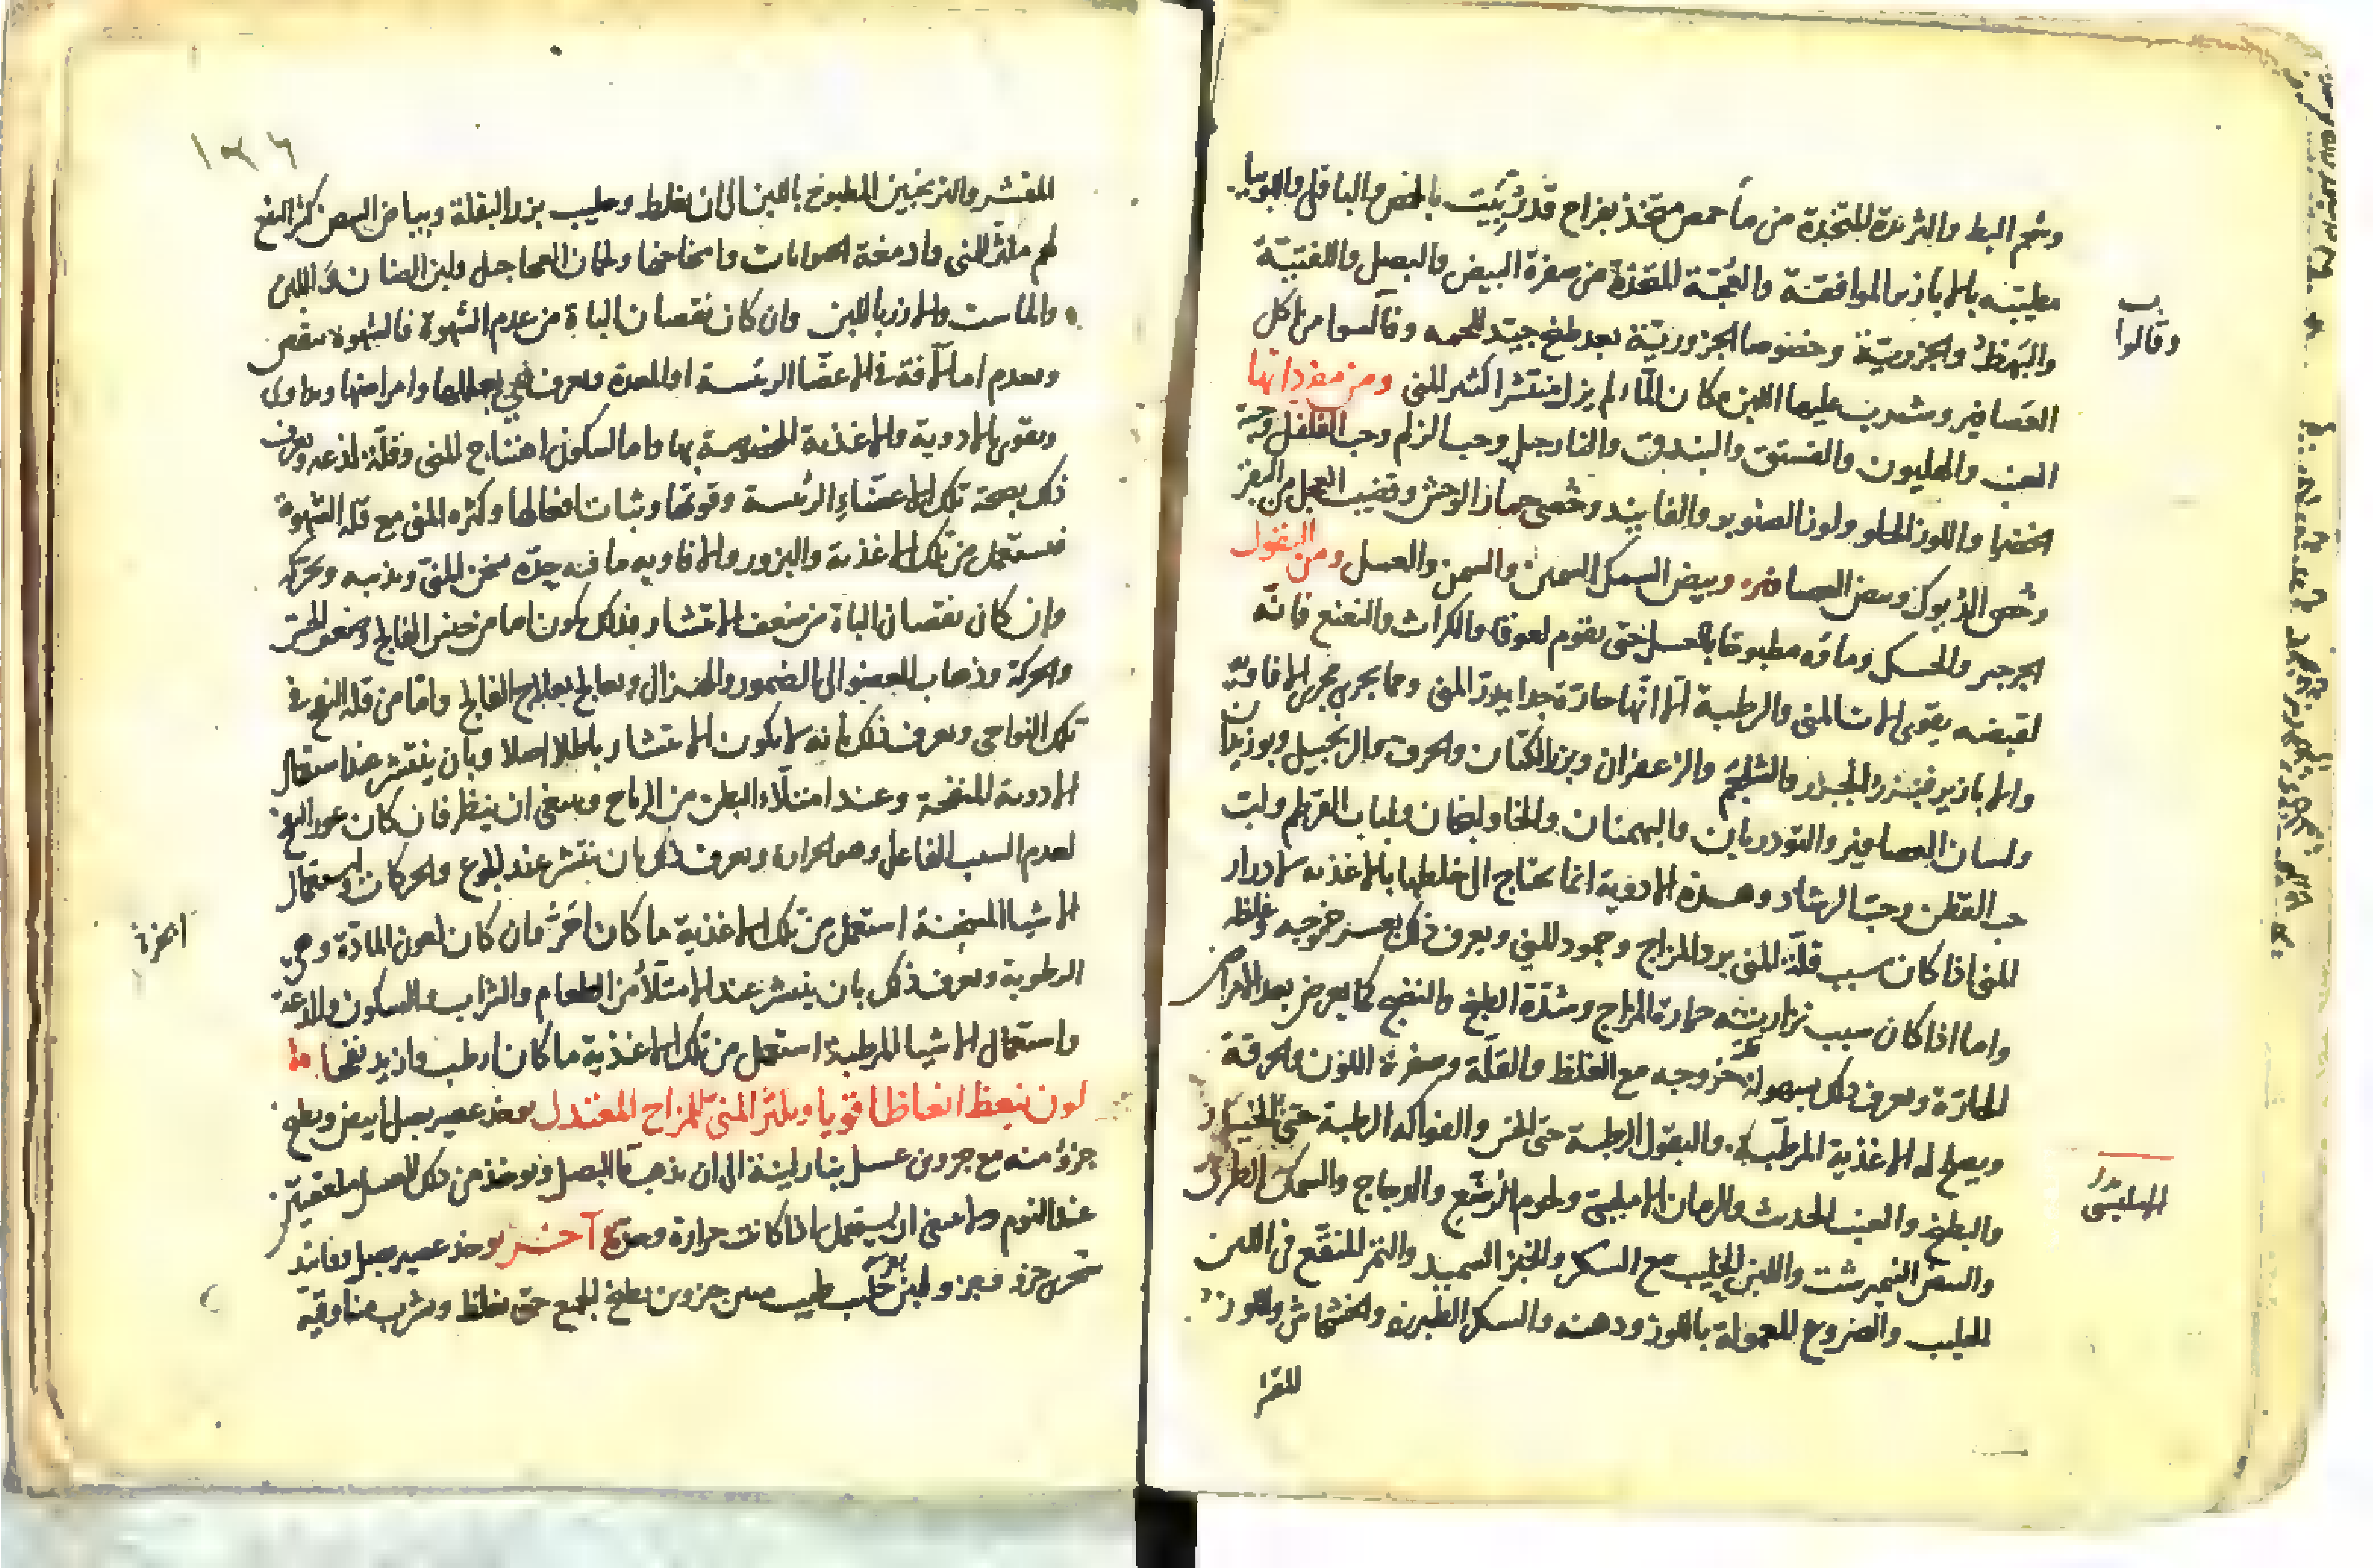 وشحم البط والثردة المتخذة من ماء حمص متخذ بفراخ قد رُبِّيت بالحمص والباقلى واللوبيا
مطيبته بالاباذير الموافقة والعُجّة المتخذة من صفرة البيض والبصل واللفتيّة
والبَهَطّ والجزوريّة وخصوصا الجزوريّة بعد طبخ جيّد للحمه وقالوا من اكل
العصافير وشرب عليها اللبن مكان الماء لم يزل منتشرا كثير المنى ومن مفرداتها
العنب والهليون والفستق والبندق والنارجيل وحب الزلم وحب الفلفل وحبة
الخضرا واللوز الحلو ولوز الصنوبر والفانيد وخصى حمار الوحش وقضيب العجل
وخصى الديوك وبيض العصافير وبيض السمك السمين والسمن والعسل ومن البقول
الجرجير والحسك وماؤه مطبوخا بالعسل حتى يقوم لعوقا والكراث والنعنع فانّه
لقبضه يقوى الات المنى والرطبة الا انّها حارة جدا يدرّ المنى ومما يجرى مجرى الافاويه
والاباذير فبزر الجزر والشلجم والزعفران وبزر الكتان والحرف والزنجبيل وبوزيدان
ولسان العصافير والتودريان والبهمنان والخاولنجان ولباب القرطم ولب
حب القطن وحبّ الرشاد وهذه الادوية انما يحتاج الى خلطها بالاغذيه لادرار
المنى اذا كان سبب قلّة المنى برد المزاج وجمود المني ويعرف ذلك بعسر خروجه وغلظه
واما اذا كان سبب نزارته حرارة المزاج وشدّة الطبخ والنضج كما يعرض بعد الامراض
الحارّة ويعرف ذلك بسهولة خروجه مع الغلظ والقلّة وصفرة اللون والحرقة
ويصلح له الاغذية المرطّبة والبقول الرطبة حتى الخس والفواكه الرطبة حتى الخيار
والبطيخ والعنب الحديث والرمان الامليسى ولحوم الرضّع والدجاج والسمك الطرى
والبيض النيمبرشت واللبن الحليب مع السكر والخبز السميد والتمر المنقّع فى اللبن
الحليب والفروج المعمولة باللوز ودهنه والسكر الطبرزد والخشخاش واللوز
المقشر
وقالوا
الامليسى
١٣٦
المقشر والترنجبين المطبوخ باللبن الى ان يغلظ وحليب بزر البقلة وبياض البيض كثير النفع
لهم مكثر للمنى وادمغة الحيوانات وامخاخها ولحمان العجاجيل ولبن الضان واللبن
والماست والارز باللبن وان كان نقصان الباه من عدم الشهوة فالشهوة تنقص
وتعدم اما لآفة فى الاعضا الرئسة او المعدة ويعرف بعللها وامراضها ويداوى
ويقوى بالادوية والاغذية المخصوصة بها واما لسكون اهتياج المنى وقلّة لذعه ويعرف
ذلك بصحة تلك الاعضاءِ الرئسة وقوتها وثبات افعالها وكثره المنى مع قله الشهوة
فيستعمل من تلك الاغذية والبزور والافاويه ما فيه حِدّة يسخن المنىّ ويذيبه ويحركه
وان كان نقصان الباه من ضعف الانتشار فذلك يكون اما من جنس الفالج وضعف الحس
والحركة وذهاب العضو الى الضمور والهزال ويعالج بعلاج الفالج وامّا من قله النفخ فى
تلك النواحى ويعرف ذلك بانه لا يكون الانتشار باطلا اصلا وبان ينتشر عند استعمال
الادوية المنفخة وعند امتلاء البطن من الرياح وينبغى ان ينظر فان كان عوز النفخ
لعدم السبب الفاعل وهو الحرارة ويعرف ذلك بان ينتشر عند الجوع والحركات واستعمال
الاشيا المسخنة استعمل من تلك الاغذية ما كان احرّ وان كان لعوز المادّة وهى
الرطوبة ويعرف ذلك بان ينتشر عند الامتلاء من الطعام والشراب والسكون والدعة
واستعمال الاشيا المرطبة استعمل من تلك الاغذية ما كان ارطب وازيد نفخا
ينعظ انعاظا قويا ويكثر المنىّ للمزاج المعتدل يوخذ عصير بصل أبيض ويطبخ
جزؤ منه مع جزوين عسل بنار لينة الى ان يذهب ماء البصل ويوخذ من ذلك العسل ملعقتين
عند النوم ولا ينبغى ان يستعمل اذا كانت حرارة آخر يوخذ عصير بصل وفانيد
شجرى جزء جزء ولبن حليب طيب جزوين يطبخ الجميع حتى يغلظ ويشرب منه اوقية